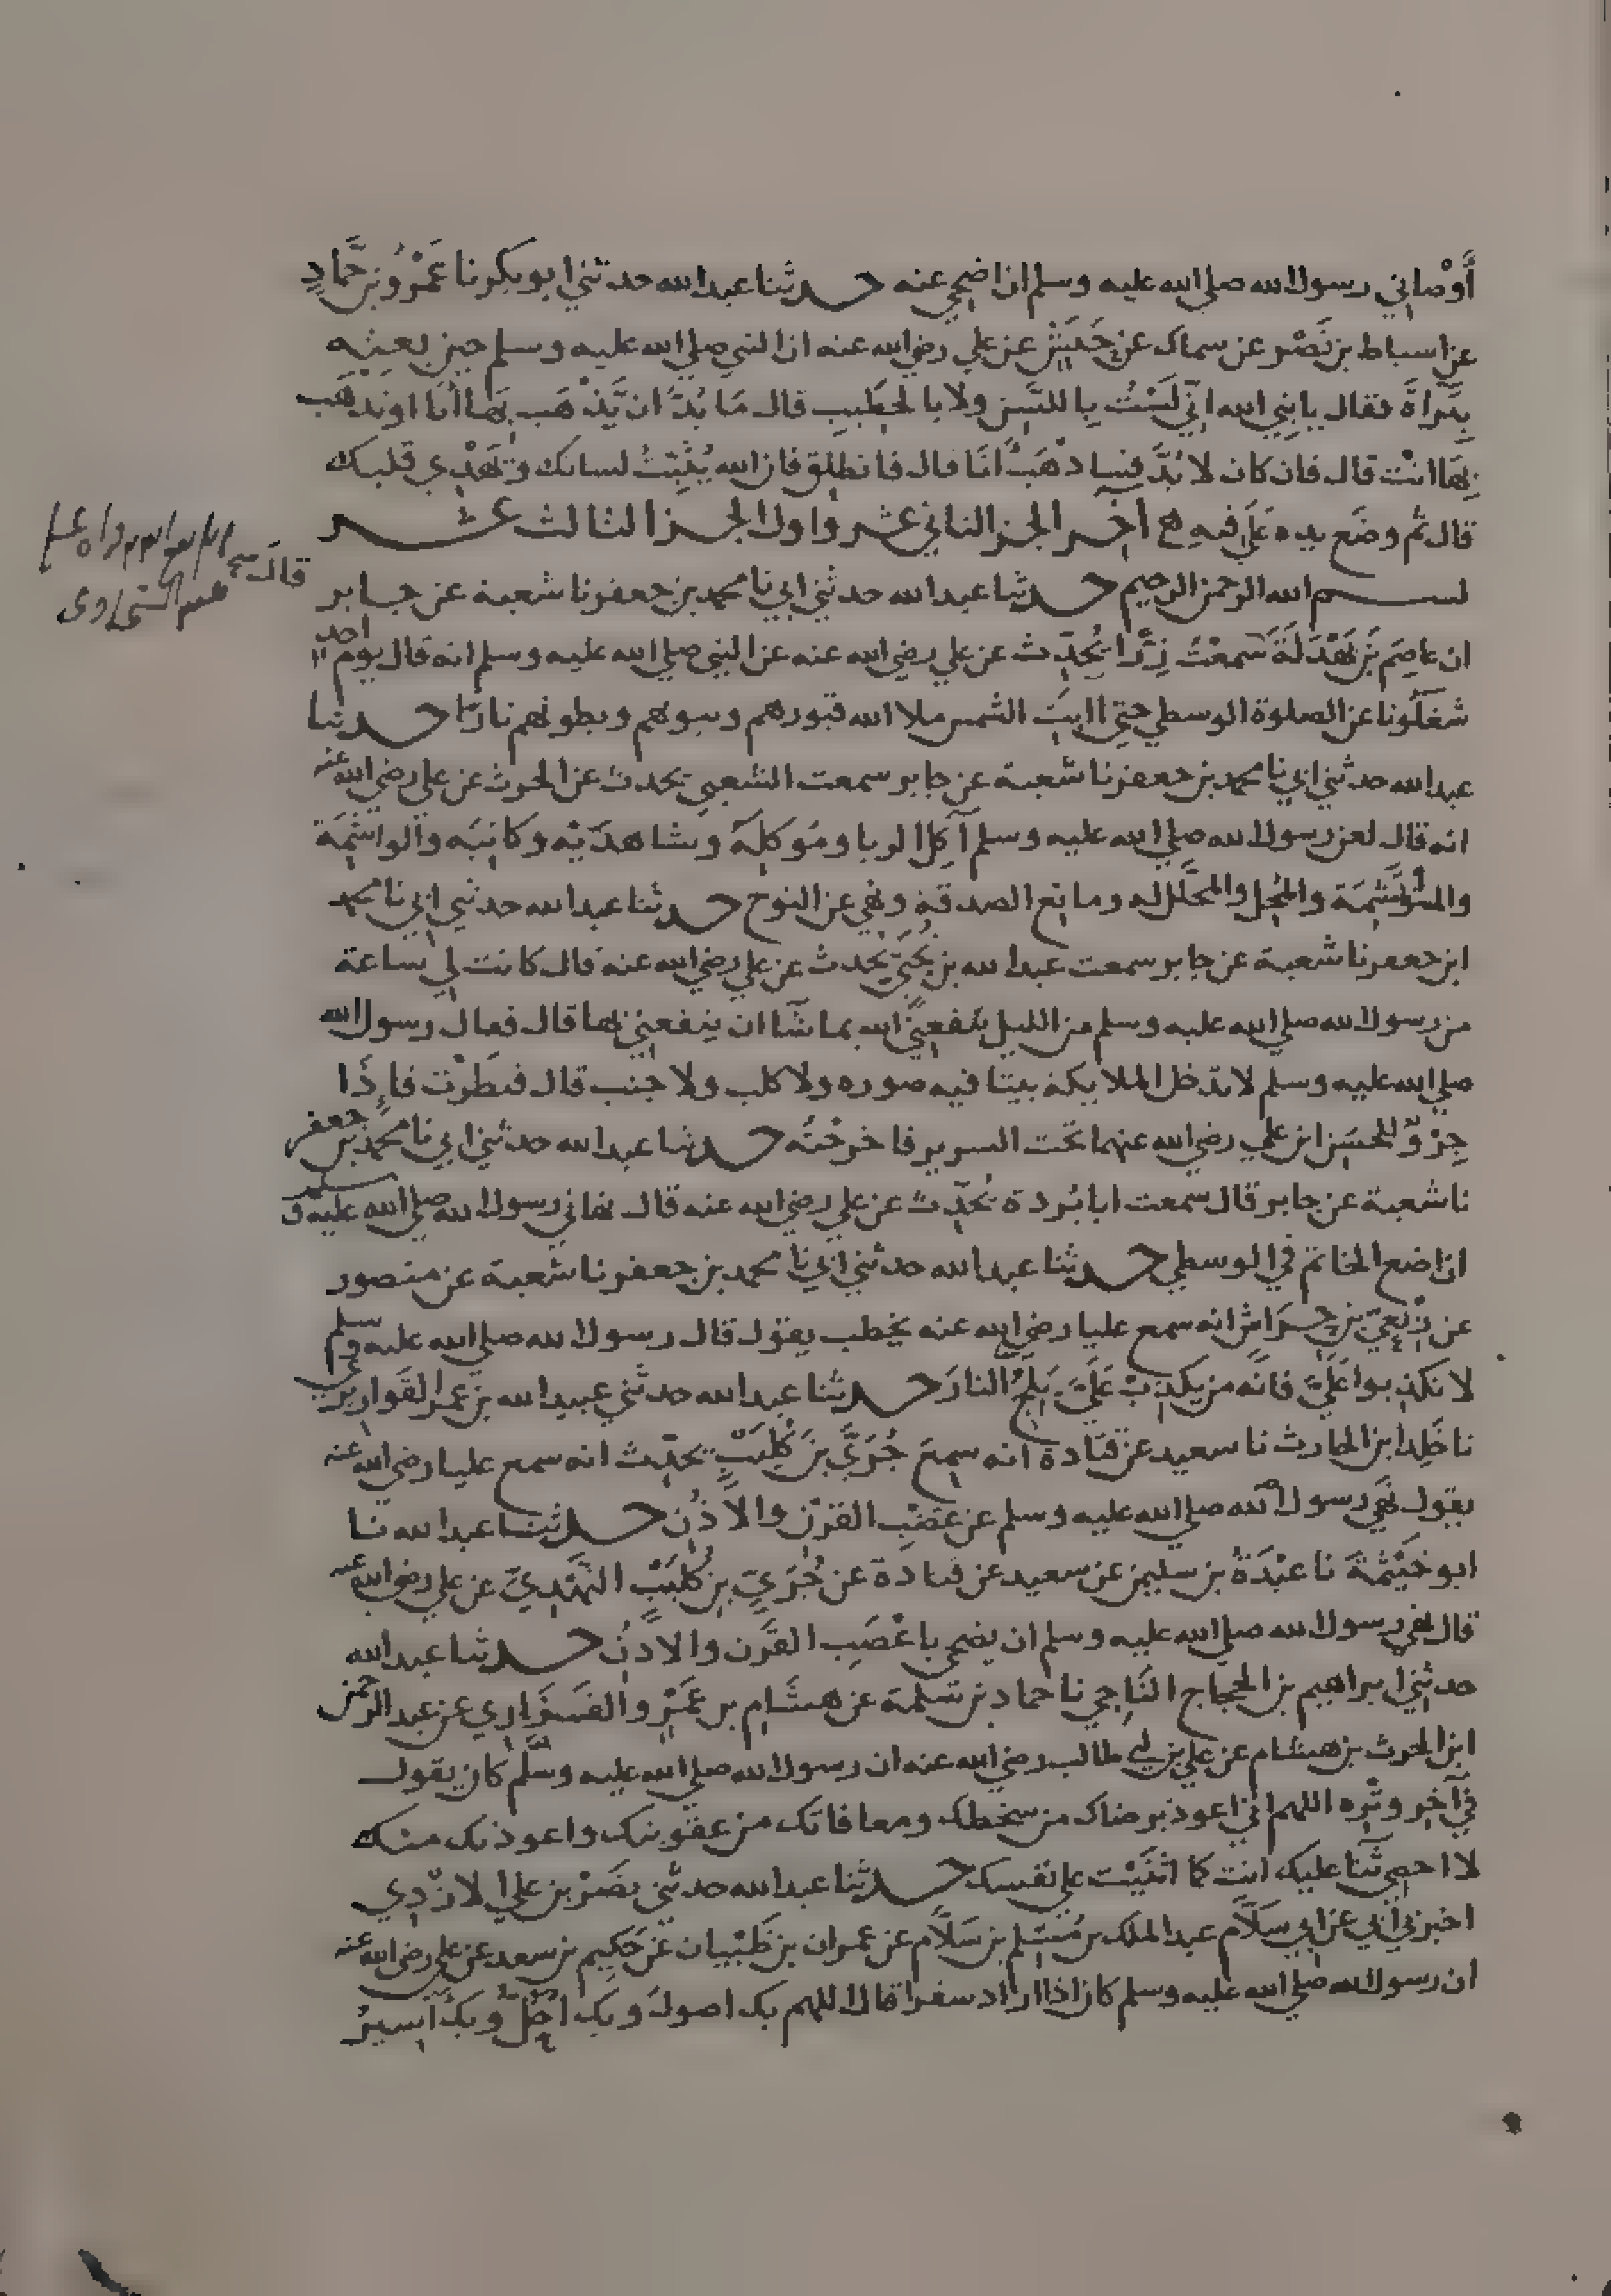 أَوْصاني رسول الله صلي الله عليه وسلم ان اضحي عنه حدثنا عبد الله حدثني ابو بكر نا عَمْرُو بن حَمَّادٍ
عن اسباط بن نَصْر عن سماك عن حَنَشٍ عن علي رضي الله عنه ان النبي صلي الله عليه وسلم حين بعثه
بِبَرَاءَةَ فقال يا نبي الله اني لَسْتُ باللَّسِنِ ولا بالخطيب قال مَا بُدَّ ان تَّذْهَب بها أنا او تذهَب
بِهَا انْت قال فان كان لا بُدَّ فسا ذْهَبُ انَا قال فانطلق فان الله يُثَبِّتُ لسانك ويَهْدِي قلبك
قال ثم وضَع يده عَلَي فيه آخر الجز الثاني عشر واول الجز الثالث عشر
بسم الله الرحمن الرحيم حدثنا عبد الله حدثني ابي نا محمد بن جعفر نا شعبة عن جابر
ان عاصِم بْنَ بَهْدَلَةَ سَمعْتُ زِرًّا يُحَدِّث عن علي رضي الله عنه عن النبي صلي الله عليه وسلم انه قال يوم احد
شغَلُونا عن الصلوة الوسطي حتي اابَت الشمس ملا الله قبورهم وبيوهم وبطونهم نارًا حدثنا
عبد الله حدثني ابي نا محمد بن جعفر نا شعبة عن جابر سمعت الشعبي يحدث عن الحرث عن علي رضي الله عنه
انه قال لعن رسول الله صلي الله عليه وسلم آكِلَ الربا وموكِلَهُ وشاهدَيْه وكاتبَه والواشمَة
والمُسْتَوْشِمَة والمُحِل والمحلَّل له ومانع الصدقة ونهي عن النوح حدثنا عبد الله حدثني ابي نا محمد
ابن جعفر نا شعبة عن جابر سمعت عبد الله بن نُجَيّ يُحدث عن علي رضي الله عنه قال كانت لي ساعة
من رسول الله صلي الله عليه وسلم من الليل ينفعني الله بما شآ ان ينفعني بها قال فقال رسول الله
صلي الله عليه وسلم لا تدخل الملايكة بيتا فيه صوره ولا كلب ولا جنب قال فنَظَرْت فاِذَا
جِرْوٌ للحسَن ابن علي رضي الله عنهما تحت السرير فاخرجْتُه حدثنا عبد الله حدثني ابي نا محمد بن جعفر
نا شعبة عن جابر قال سمعت ابا بُردة يُحَدِّث عن علي رضي الله عنه قال نهاني رسول الله صلي الله عليه وسلم
ان اضع الخاتم في الوسطي حدثنا عبد الله حدثني ابي نا محمد بن جعفر نا شعبة عن منصور
عن رِبْعِيّ بن حِرَاشٍ انه سمع عليا رضي الله عنه يخطب يقول قال رسول الله صلي الله عليه وسلم
لا تكذبوا عَلَيَّ فانه من يكذِبْ عَلَيَّ يَلِجُ النارَ حدثنا عبد الله حدثني عبيد الله بن عمر القَوارِيري
نا خَالد ابن الحارث نا سعيد عن قتادة انه سمِعَ جُرَيَّ بنَ كُلَيْبٍ يحدِّث انه سمع عليا رضي الله عنه
يقول نهَي رسول الله صلي الله عليه وسلم عن عَضَبِ القرْنِ والاُذُن حدثنا عبد الله نا
ابو خَيْثَمَةَ نا عَبْدَةُ بن سليمن عن سعيد عن قتادة عن جُرَيّ بن كُلَيْبٍ النَّهْدِيّ عن علي رضي الله عنه
قال نهَي رسول الله صلي الله عليه وسلم ان يضحي باعْضَبِ القَرْن والاُذُن حدثنا عبد الله
حدثني ابراهيم بن الحجاج النَّاجِي نا حماد بن سَلَمة عن هشام بن عَمْرٍو الفَزَارِي عن عبد الرحمن
ابن الحرث بن هشام عن علي بن ابي طالب رضي الله عنه ان رسول الله صلي الله عليه وسلّم كان يقول
في آخِر وتْرِه اللهم اني اعوذ برضاك من سخطك ومعافاتك من عقوبتك واعوذ بك منك
لا احصي ثَنا عليك انت كما اثنَيْت علي نفسك حدثنا عبد الله حدثني نصْر بن علي الازْدِي
اخبرني أبي عن ابي سَلاَّم عبد الملك بن مُسْلم بن سَلاَّم عن عمران بن ظَبْيان عن حَكِيم بن سعد عن علي رضي الله عنه
ان رسول الله صلي الله عليه وسلم كان اذا اراد سفرا قال اللهم بك اصول وبك احُلُّ وبك أسيرُ